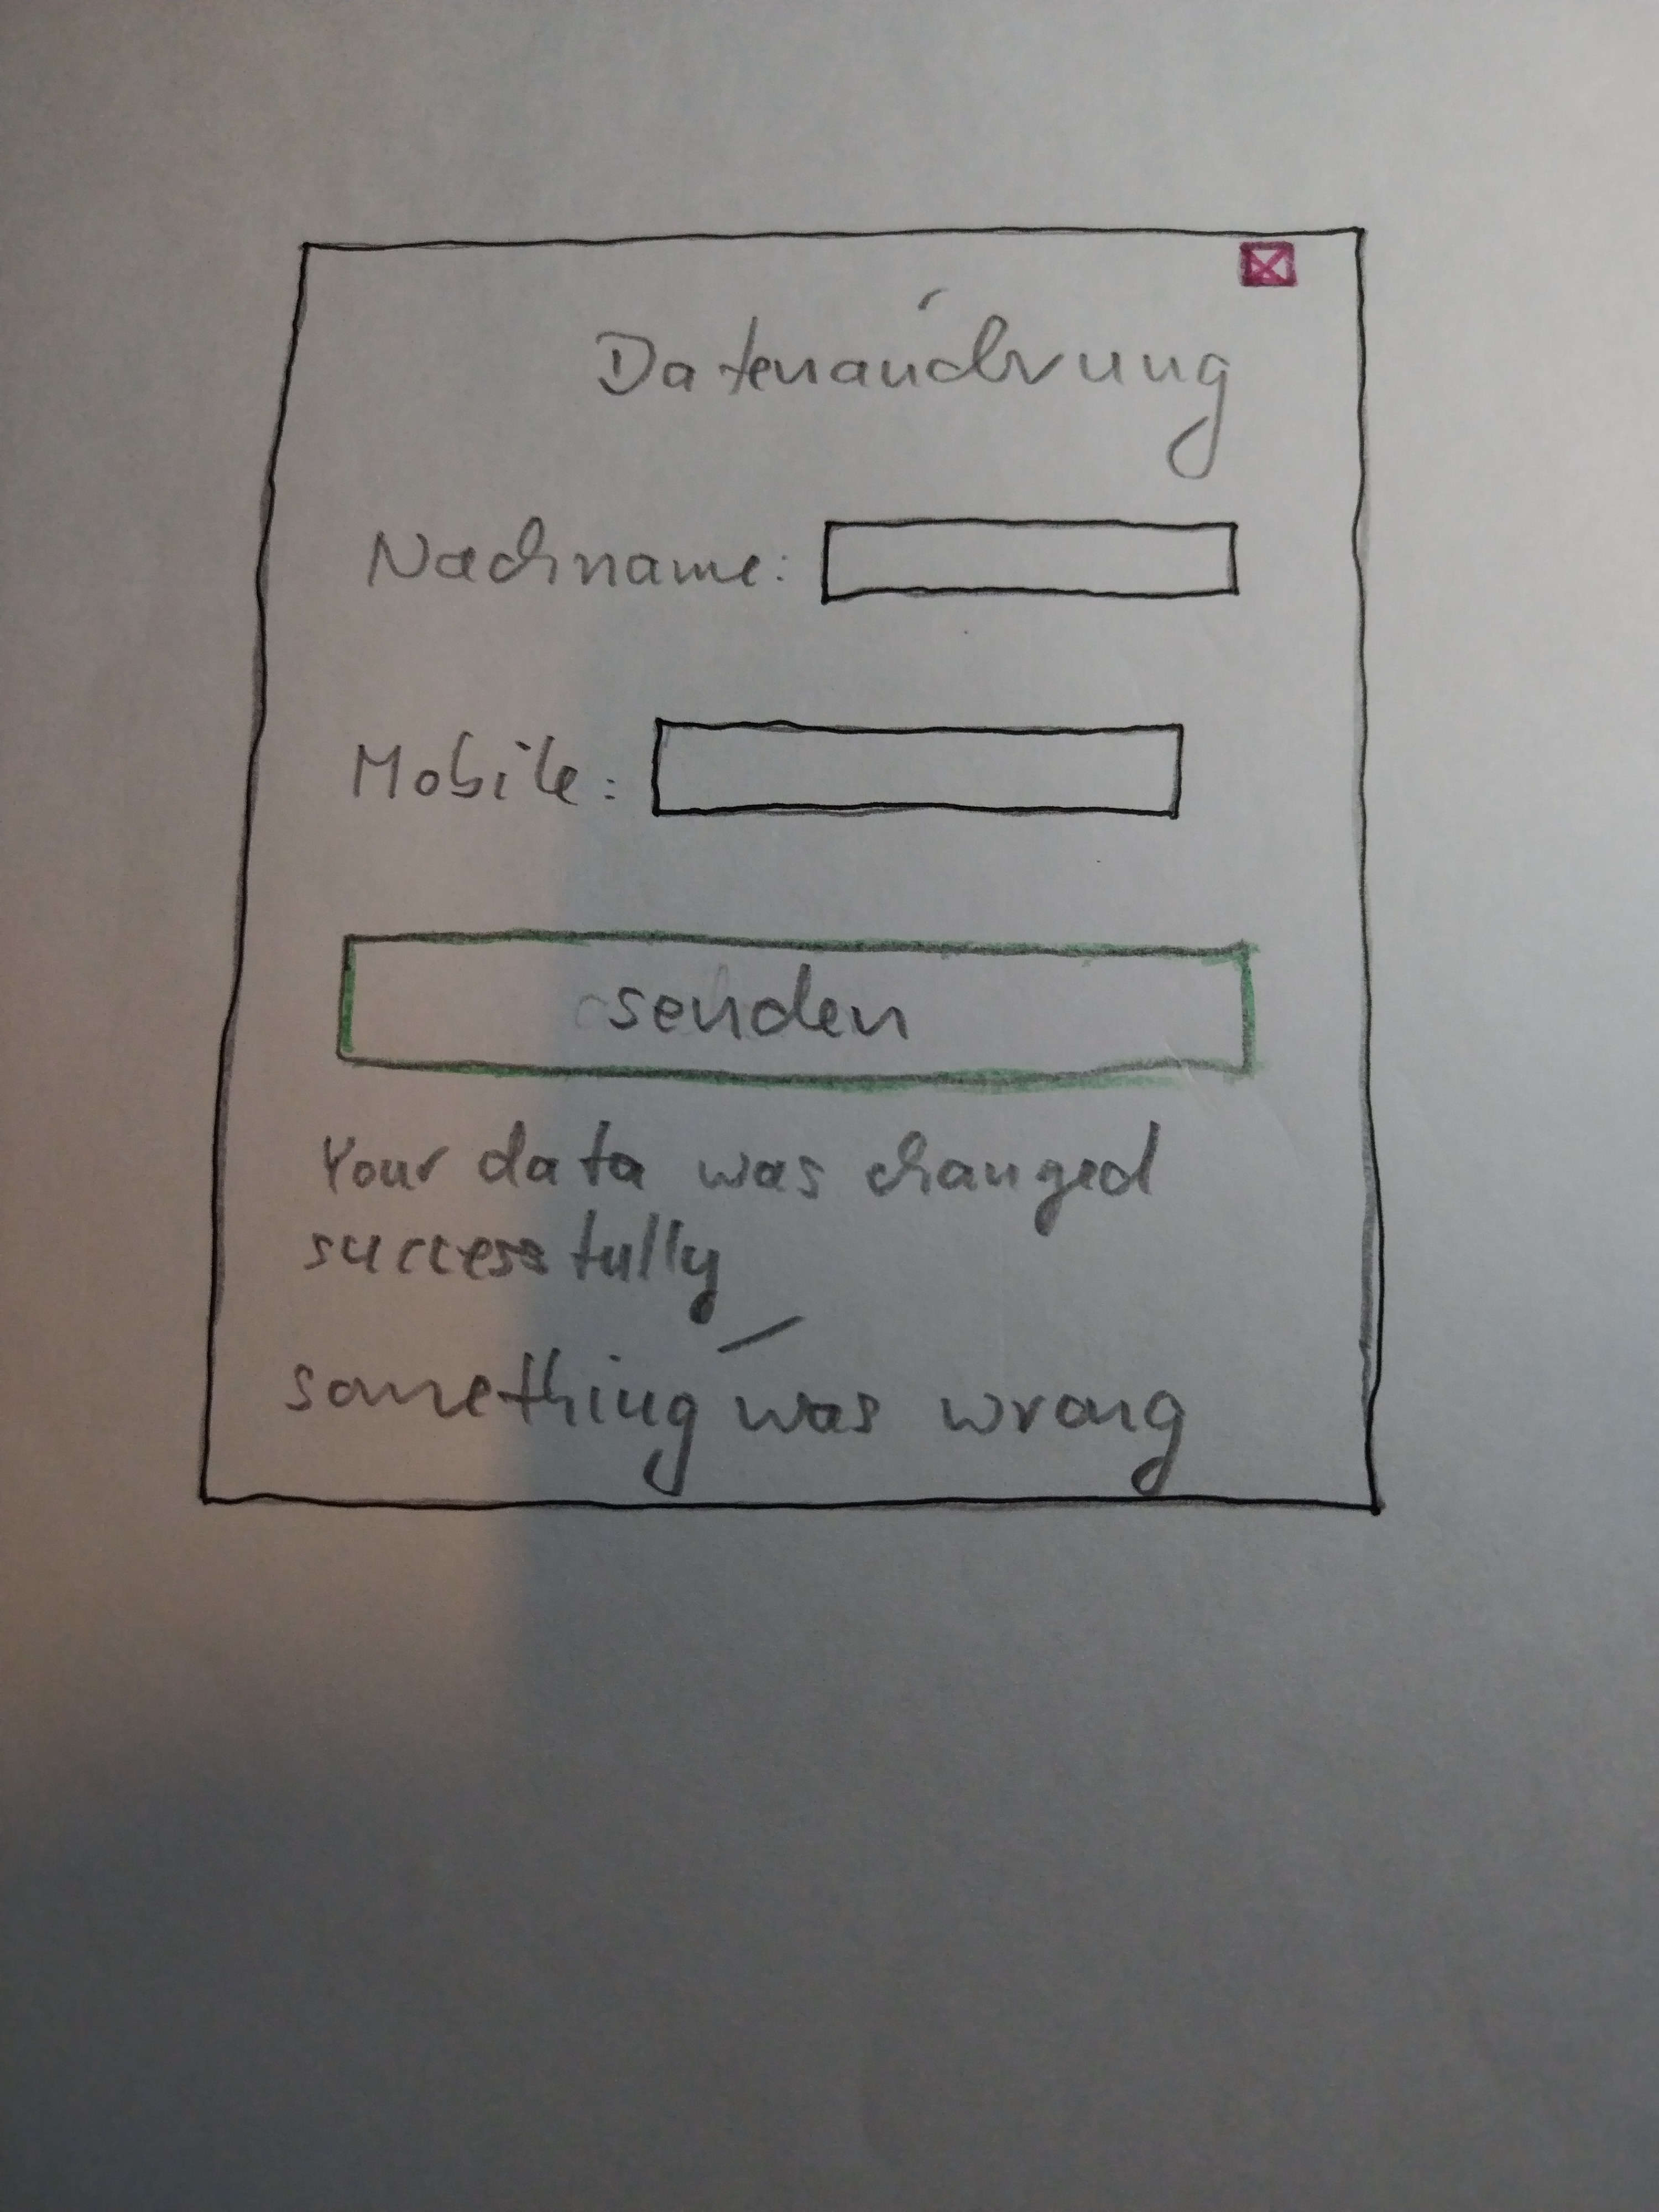 Datenändrung
Nachname:
Mobile:
senden
Your data was changed
successfully
/
something was wrong